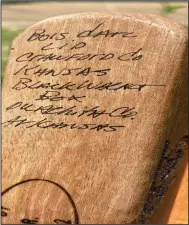 BOIS D'ARC
LID
CRAWFORD CO
KANSAS
BLACK WALNUT
BOX
OUACHITA CO
ARKANSAS